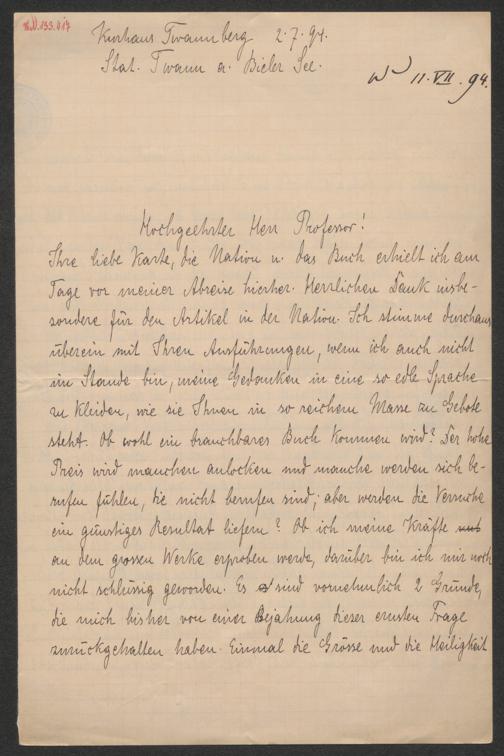 N.I.133.017
Kurhaus Twannberg 2.7.94.
Stat. Twann a. Bieler See.
11.VII.94.
Hochgeehrter Herr Professor!
Ihre liebe Karte, die Nation u. das Buch erhielt ich am
Tage vor meiner Abreise hierher. Herzlichen Dank insbe-
sondere für den Artikel in der Nation. Ich stimme durchaus
überein mit Ihren Ausführungen, wenn ich auch nicht
im Stande bin, meine Gedanken in eine so edle Sprache
zu kleiden, wie sie Ihnen in so reichem Masse zu Gebote
steht. Ob wohl ein brauchbares Buch kommen wird? Der hohe
Preis wird manchen anlocken und manche werden sich be-
rufen fühlen, die nicht berufen sind; aber werden die Versuche
ein günstiges Resultat liefern? Ob ich meine Kräfte
an dem grossen Werke erproben werde, darüber bin ich mir noch
nicht schlüssig geworden. Es sind vornehmlich 2 Gründe,
die mich bisher von einer Bejahung dieser ernsten Frage
zurückgehalten haben. Einmal die Grösse und die Heiligkeit